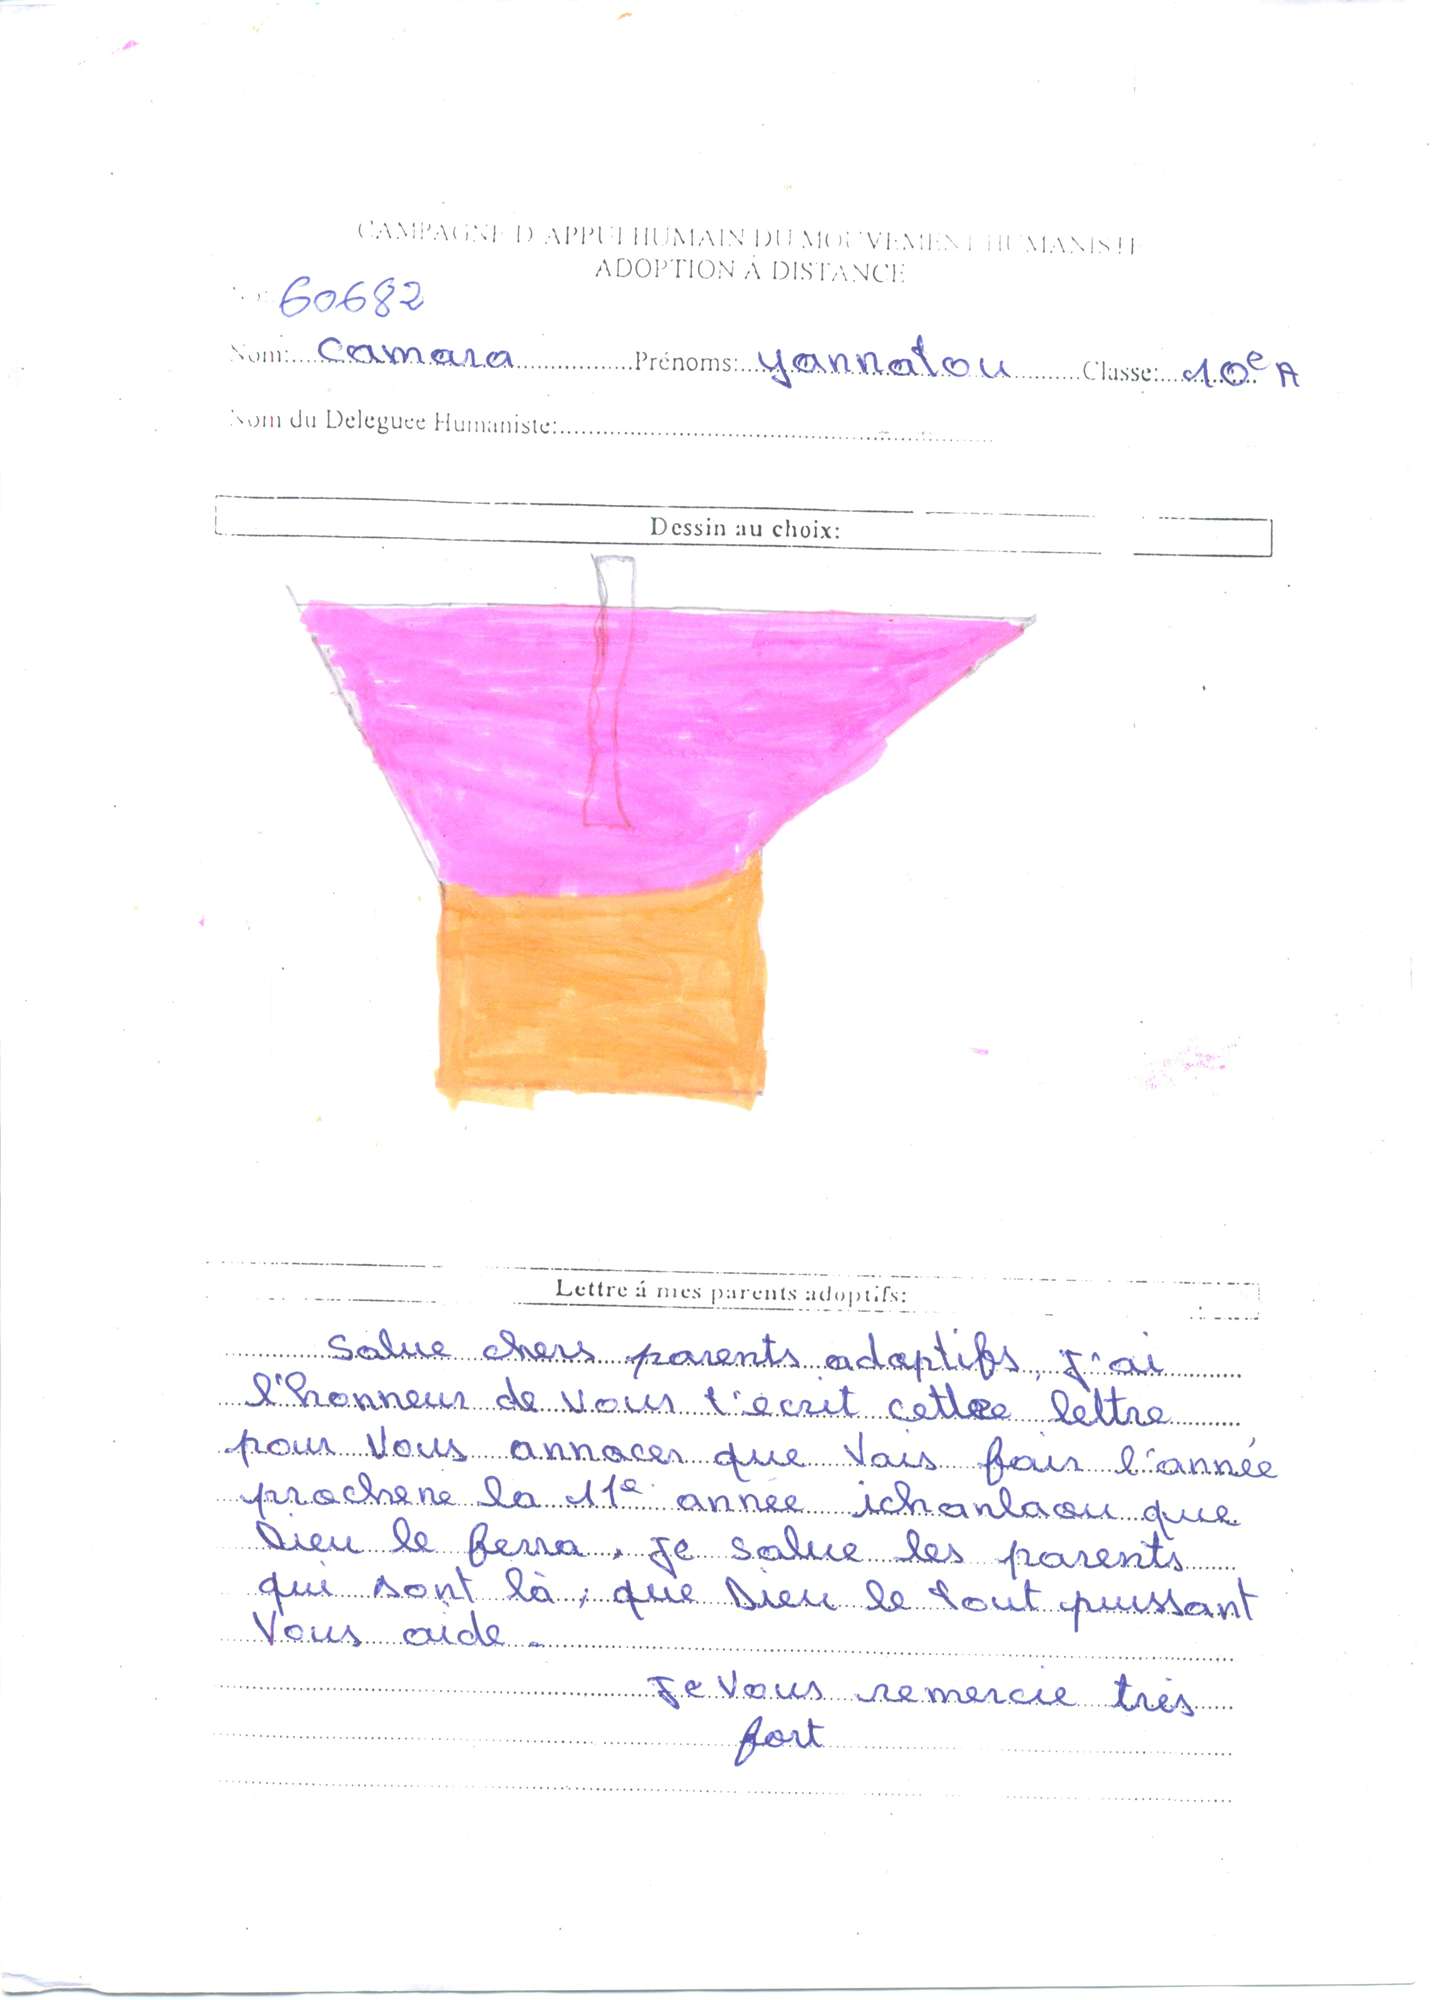 CAMPAGNE D'APPUI HUMAIN DU MOUVEMENT HUMANISTE
ADOPTION Á DISTANCE
No: 60682
Nom: Camara Prénoms: yannatou Classe: 10e A
Nom du Deleguee Humaniste:
Dessin au choix:
Lettre á mes parents adoptifs:
Salue chers parents adoptifs, J'ai
l'honneur de vous l'écrit cette lettre
pour Vous annacer que Vais fair l'année
prochene la 11e année ichanlaou que
Dieu le ferra, Je salue les parents
qui sont là, que Dieu le tout puissant
Vous aide.
Je Vous remercie très
fort